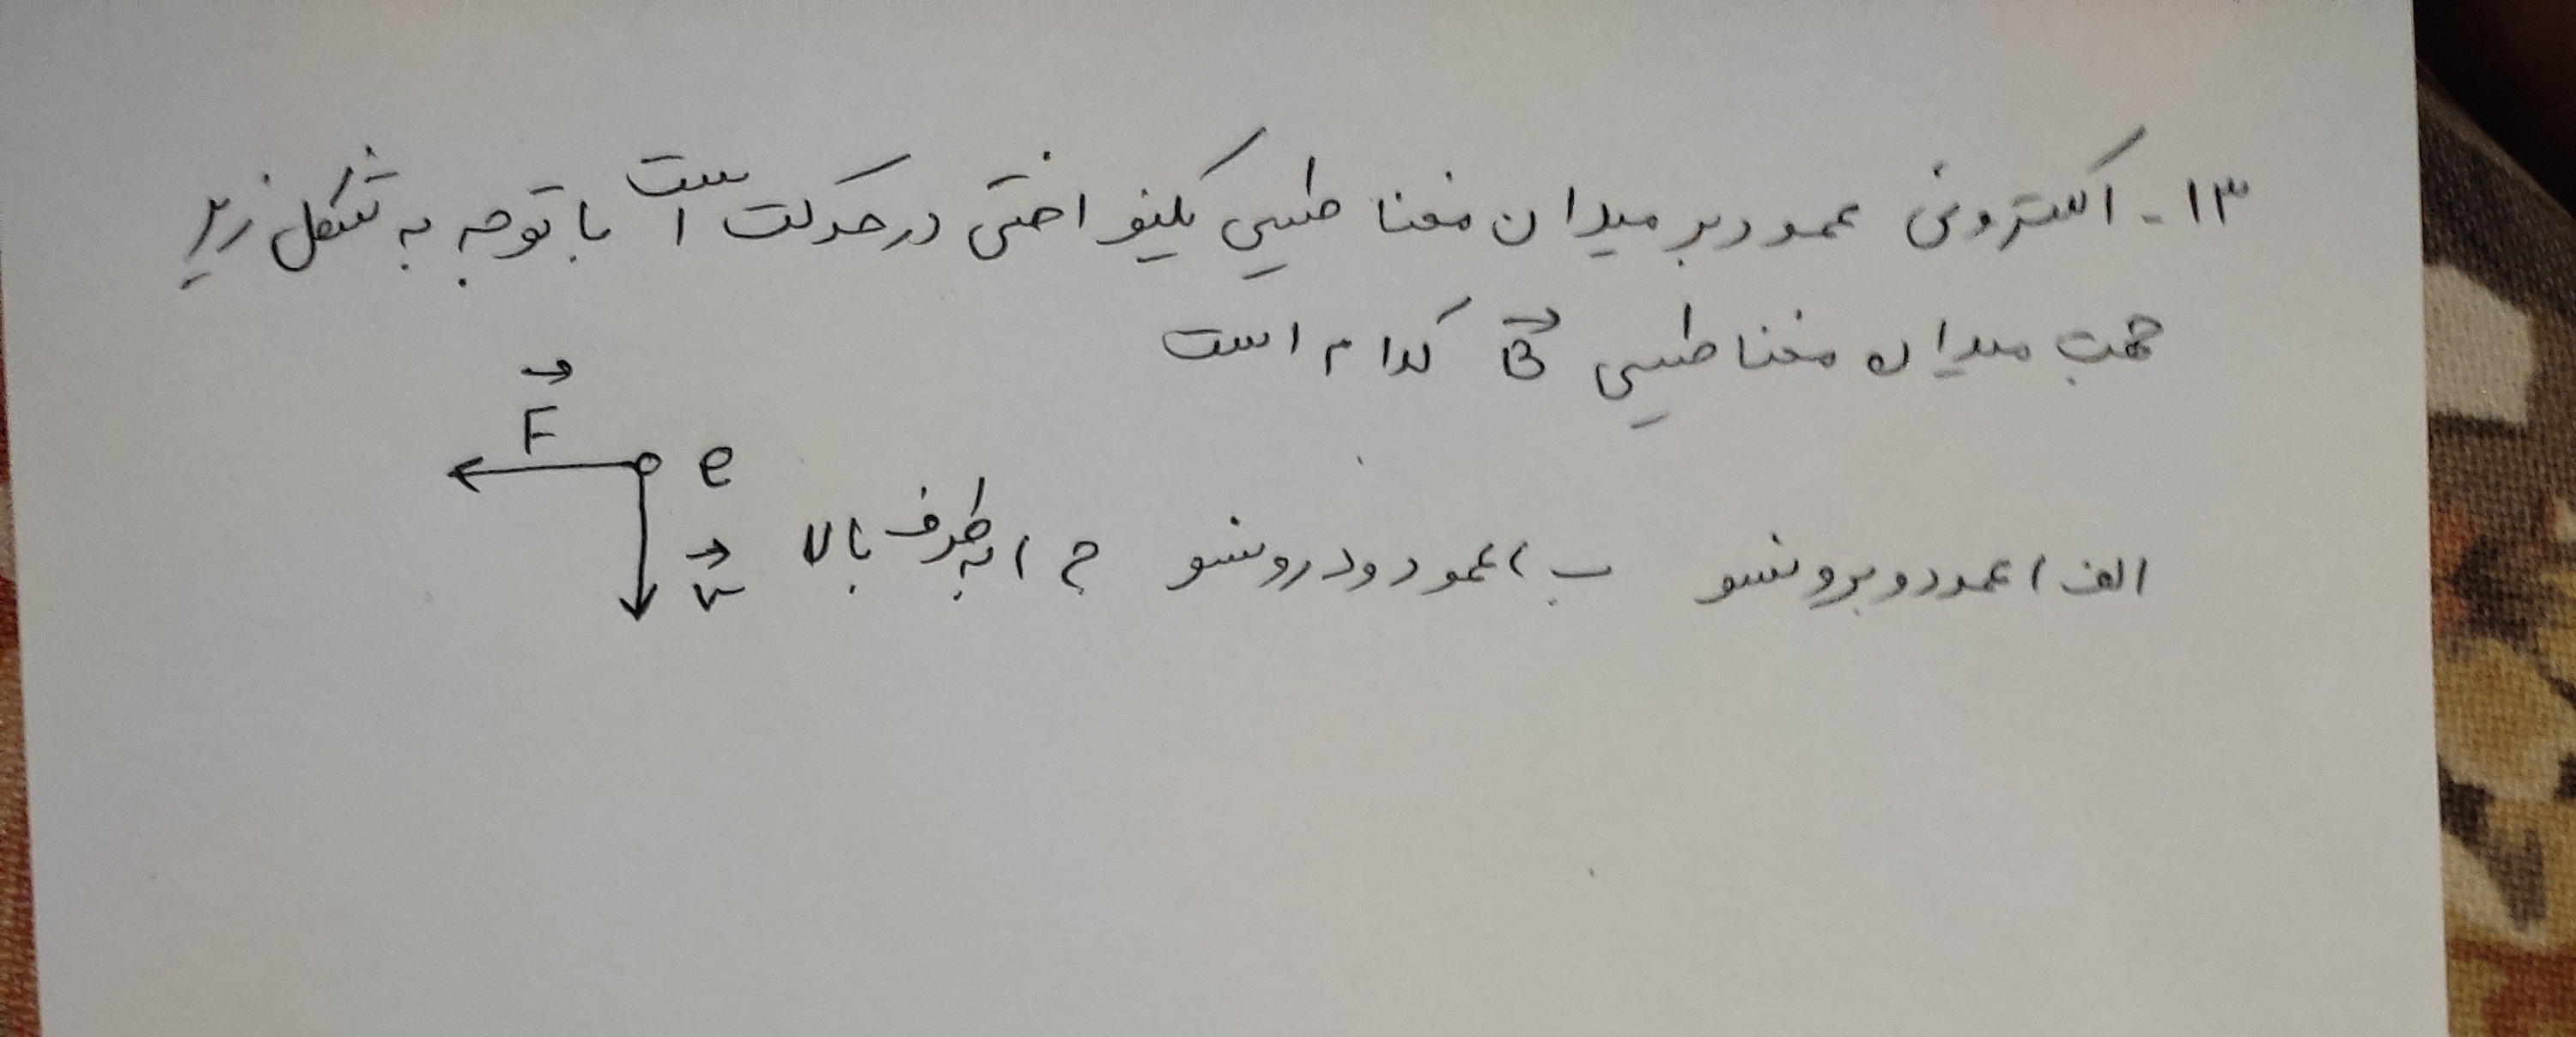 ۱۳- الکترونی عمود بر میدان مغناطیسی یکنواختی در حرکت است با توجه به شکل زیر
جهت میدان مغناطیسی B کدام است
F
e
v
الف) عمود و برونسو ب) عمود و درونسو ج) به طرف بالا